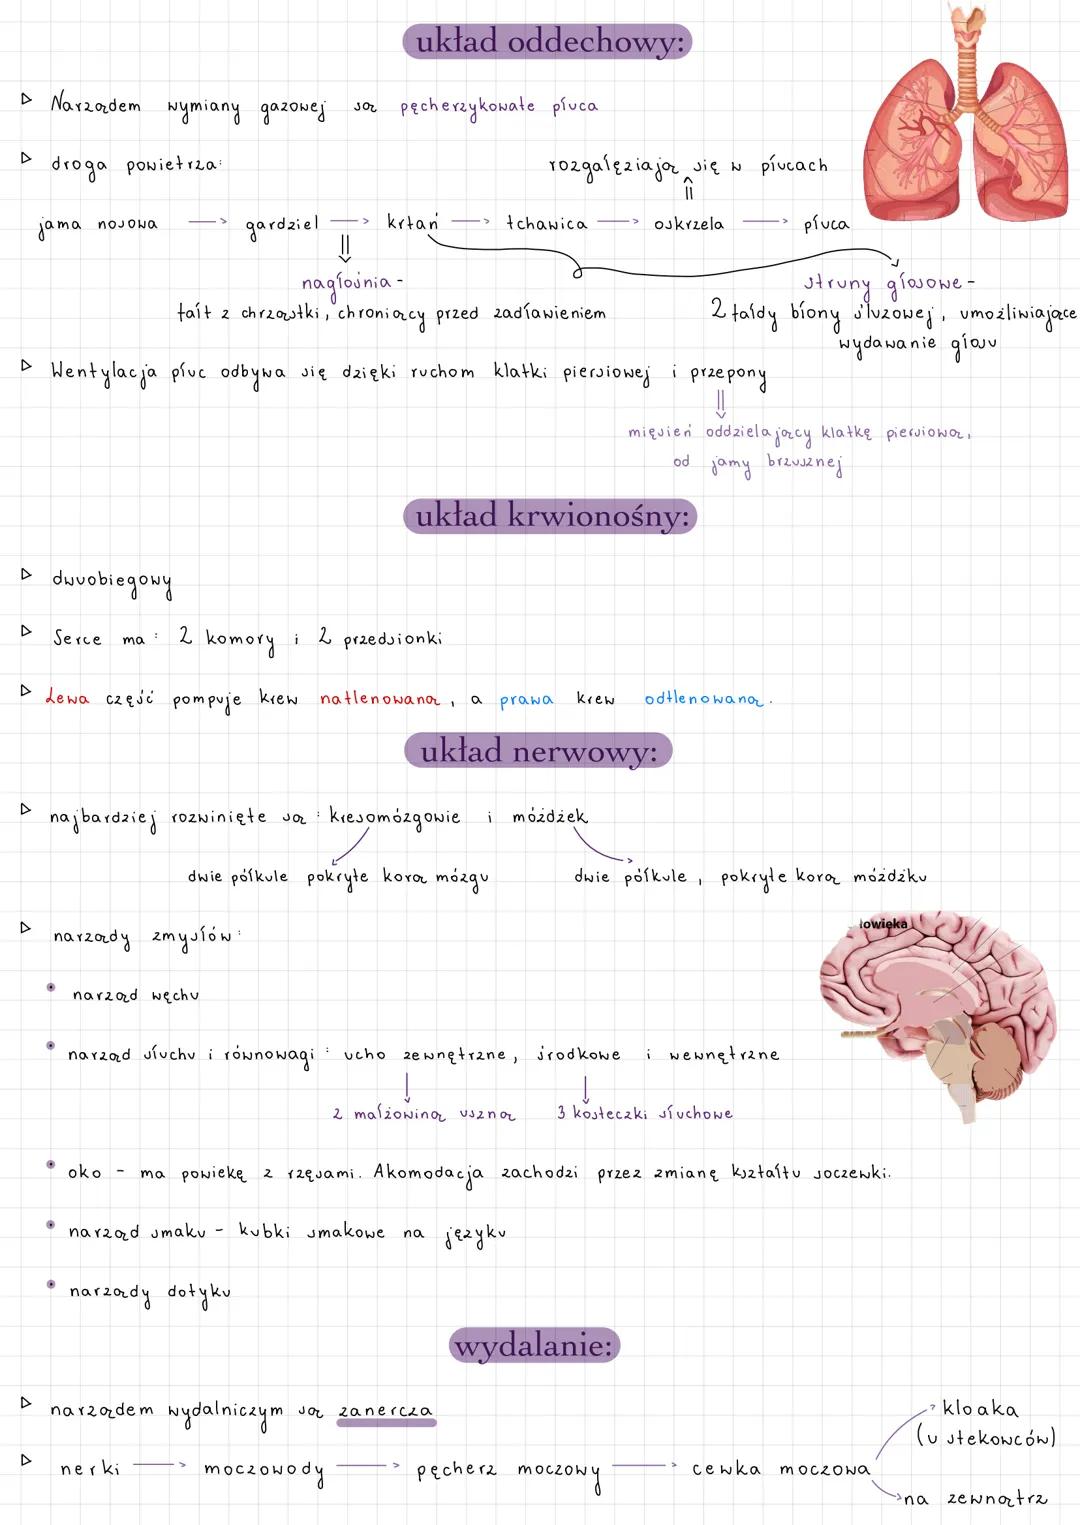 układ oddechowy:
Narządem wymiany gazowej są pęcherzykowate płuca
droga powietrza:
rozgałęziają się w płucach
jama nosowa → gardziel → krtań → tchawica → oskrzela → płuca
nagłośnia -
fałt z chrząstki, chroniący przed zadławieniem
struny głosowe -
2 fałdy błony śluzowej, umożliwiające
wydawanie głosu
Wentylacja płuc odbywa się dzięki ruchom klatki piersiowej i przepony
mięsień oddzielający klatkę piersiową,
od jamy brzusznej
układ krwionośny:
dwuobiegowy
Serce ma: 2 komory i 2 przedsionki
Lewa część pompuje krew natlenowaną, a prawa krew odtlenowaną.
układ nerwowy:
najbardziej rozwinięte są: kresomózgowie i móżdżek
dwie półkule pokryte korą mózgu
dwie półkule, pokryte korą móżdżku
narządy zmysłów:
łowieka
narząd węchu
narząd słuchu i równowagi: ucho zewnętrzne, środkowe i wewnętrzne
z małżowiną uszną
3 kosteczki słuchowe
oko - ma powiekę z rzęsami. Akomodacja zachodzi przez zmianę kształtu soczewki.
narząd smaku - kubki smakowe na języku
narządy dotyku
wydalanie:
narządem wydalniczym są zanercza
kloaka
(u stekowców)
nerki → moczowody → pęcherz moczowy → cewka moczowa
na zewnątrz